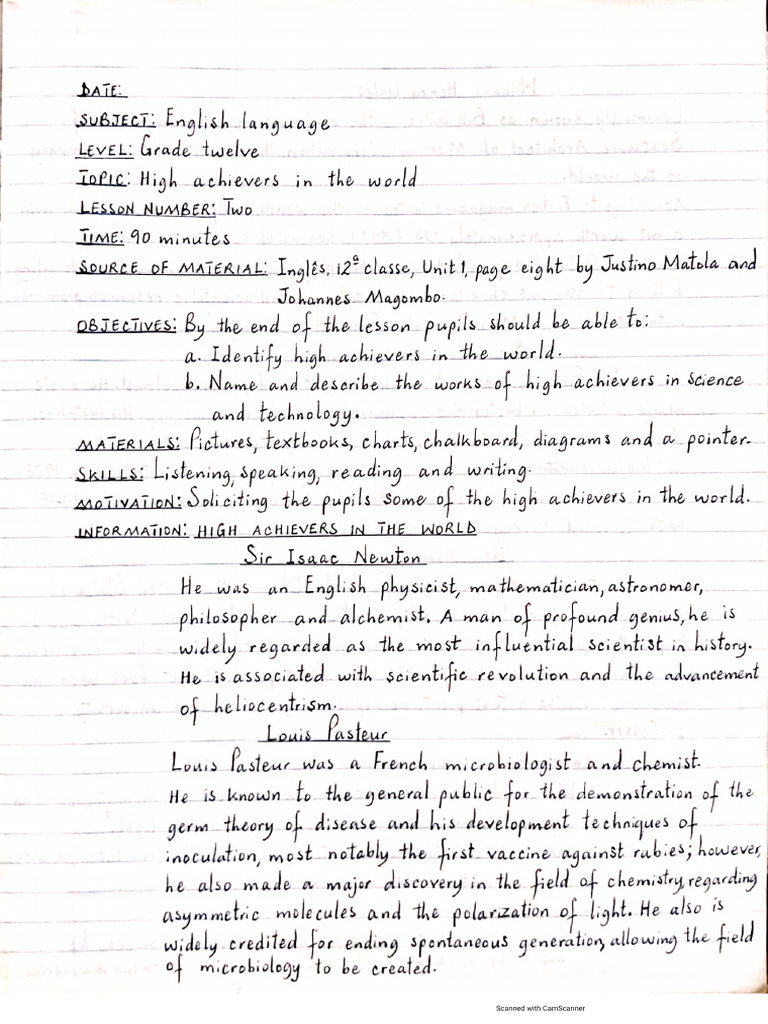 DATE:
SUBJECT: English language
LEVEL: Grade twelve
TOPIC: High achievers in the world
LESSON NUMBER: Two
TIME: 90 minutes
SOURCE OF MATERIAL: Inglês, 12ª classe, Unit 1, page eight by Justino Matola and
Johannes Magombo.
OBJECTIVES: By the end of the lesson pupils should be able to:
a. Identify high achievers in the world.
b. Name and describe the works of high achievers in science
and technology.
MATERIALS: Pictures, textbooks, charts, chalkboard, diagrams and a pointer.
SKILLS: Listening, speaking, reading and writing.
MOTIVATION: Soliciting the pupils some of the high achievers in the world.
INFORMATION: HIGH ACHIEVERS IN THE WORLD
Sir Isaac Newton
He was an English physicist, mathematician, astronomer,
philosopher and alchemist. A man of profound genius, he is
widely regarded as the most influential scientist in history.
He is associated with scientific revolution and the advancement
of heliocentrism.
Louis Pasteur
Louis Pasteur was a French microbiologist and chemist.
He is known to the general public for the demonstration of the
germ theory of disease and his development techniques of
inoculation, most notably the first vaccine against rabies; however,
he also made a major discovery in the field of chemistry, regarding
asymmetric molecules and the polarization of light. He also is
widely credited for ending spontaneous generation, allowing the field
of microbiology to be created.
Scanned with CamScanner